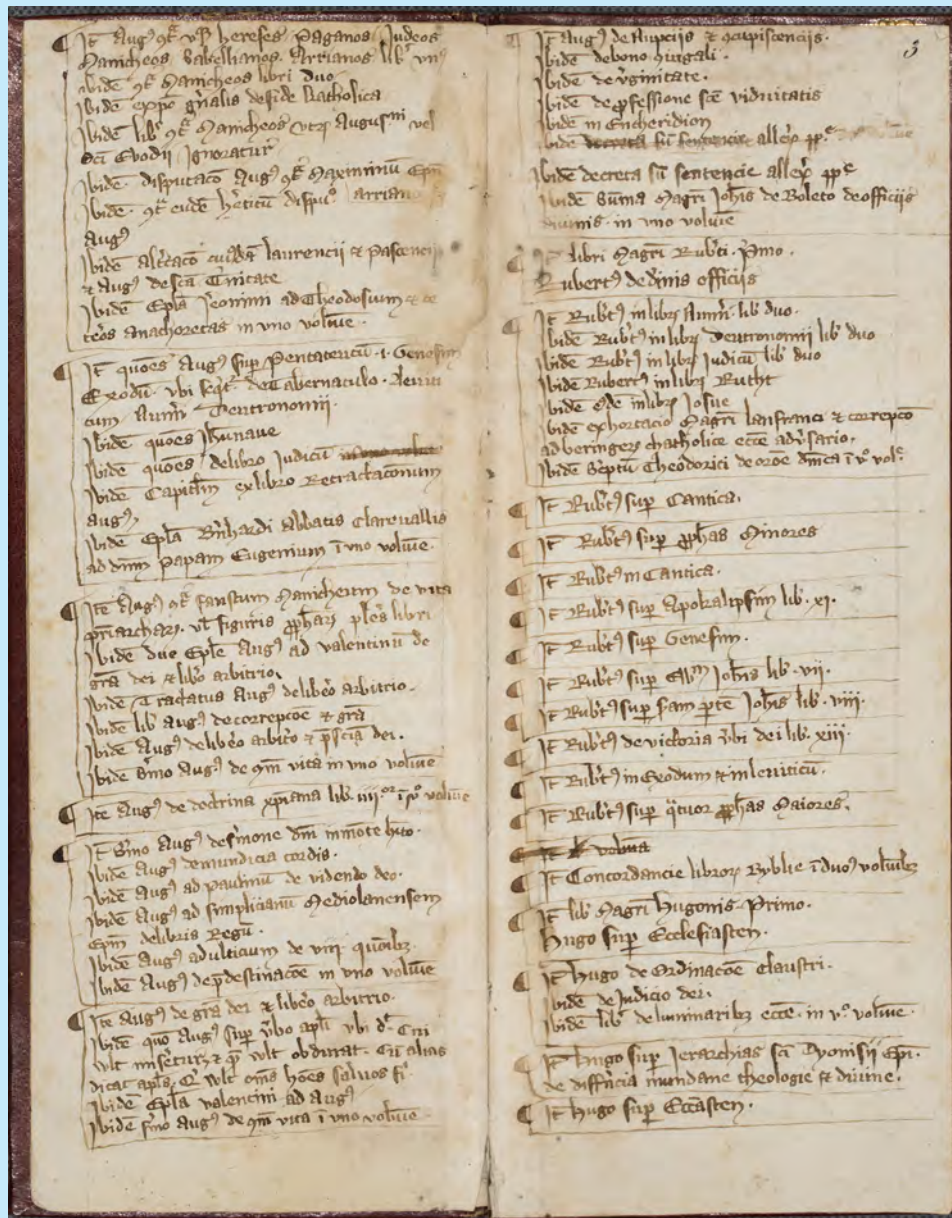 It Augꝰ ꝯͭ vꝫ hereses Paganos Judeos
Manicheos Sabellianos Arrianos libꝰ vnꝰ
ibidē ꝯͭ Manicheos libri duo
Ibidē expō gn̄alis de fide Catholica
Ibidē libꝰ ꝯͭ Manicheos vtrꝫ Augustini vel
Evodii Ignoratur
Ibidē disputacō Augꝰ ꝯͭ Maximinū Ep̄m
Ibidē ꝯͭ eundē h̄eticū dispuͦ arriano
Augꝰ
Ibidē alt̄cacō cuiꝰdā laurencii et Pascencii
et Augꝰ de sc̄a Trinitate
Ibidē Epl̄a Jeronimi ad Theodosium et ce
tēos anachoretas in vno volūe
It quōes Augꝰ suꝑ Pentateucū .i. Genesim
Exodū vbi seqͭr de Tabernaculo leuiti
cum Num̄i Deutronomii.
Ibidē quōes Ih̄unaue
Ibidē quōes de libro Judicū
Ibidē Capitl̄m ex libro Retractaconum
Augꝰ
Ibidē Epl̄a Bn̄hardi Abbatis Clareuallis
ad dn̄m Papam Eugenium ī vno volūe
Itē Augꝰ ꝯͭ faustum Manicheum de vita
pr̄iarchaꝝ. vl̄ figuris ꝓph̄aꝝ pl̄es libri
Ibidē due Epl̄e Augꝰ ad valentinū de
gr̄a dei et lib̄o arbitrio
Ibidē Tractatus Augꝰ de lib̄o arbitrio.
Ibidē lib Augꝰ de correpcōe et gr̄a
Ibidē Augꝰ de lib̄o arbit̄o et p̄scīa dei.
Ibidē s̄mo Augꝰ de qm̄ vita in vno volūe
Itē Augꝰ de doctrina xp̄iana lib. iiii.ᵒʳ ī vͦ volūe
It S̄mo Augꝰ de s̄mone dn̄i in mōte h̄ito.
Ibidē Augꝰ de mundicia cordis.
Ibidē Augꝰ ad paulinū de videndo deo.
Ibidē Augꝰ ad simplicianū Mediolanensem
Ep̄m de libris Regū.
Ibidē Augꝰ ad ulticium de viii quōibꝫ
Ibidē Augꝰ de p̄destinacōe in vno volūe
Itē Augꝰ de gr̄a dei et lib̄o arbitrio.
Ibidē quō Augꝰ suꝑ v̄bo apl̄i vbi dͬ. Cui
vlt miseretur et qͤ vlt obdurat. Cū alias
dicat apl̄s. Qͥ vlt om̄s hōes saluos fiͥ
Ibidē Epl̄a valentini ad Augꝰ
Ibidē s̄mo Augꝰ de qm̄ vita ī vno volūe
3
It Augꝰ de Nupciis et ꝯcupiscenciis.
Ibidē de bono ꝯiugali.
Ibidē de v̄ginitate.
Ibidē de ꝓfessione sc̄e viduitatis
Ibidē in Encheridion
Ibidē decreta sn̄ sentencie allex̄ pp̄ͤ
Ibidē decreta sn̄ sentencie allex̄ pp̄ͤ
Ibidē Sūma Magr̄i Joh̄is de Boleto de officiis
diuinis in vno volūie
It libri Magr̄i Rub̄ti. Pͥmo.
Rubertꝰ de diuīis officiis
It Rub̄tꝰ in librꝫ Num̄i lib duo.
Ibidē Rub̄tꝰ in librꝫ Deutronomii libꝰ duo
Ibidē Rub̄tꝰ in librꝫ Judicū libꝰ duo
Ibidē Rubertꝰ in librꝫ Rutht
Ibidē Idē in librꝫ Josue
Ibidē exhortacio Magr̄i lanfranci et correpcō
ad beringerꝫ chatholice ecc̄e adūsario.
Ibidē Sc̄ptū Theodorici de orōe dn̄ica ī vͦ volͤ.
It Rub̄tꝰ suꝑ Cantica.
It Rub̄tꝰ suꝑ ꝓph̄as Minores
It Rub̄tꝰ in Cantica.
It Rub̄tꝰ suꝑ Apokalipsim lib. xi.
It Rub̄tꝰ suꝑ Genesim.
It Rub̄tꝰ suꝑ Ewᵐ Joh̄is lib. vii.
It Rub̄tꝰ suꝑ sꝫam ꝑtē Joh̄is lib. viii.
It Rub̄tꝰ de victoria v̄bi dei lib. xiii.
It Rub̄tꝰ in Exodum et in leuiticū.
It Rub̄tꝰ suꝑ qͣtuor ꝓph̄as Maiores.
It volūia
It Concordancie libroꝝ Byblie ī duoꝰ volūībꝫ
It lib Magr̄i Hugonis. Primo.
Hugo suꝑ Ecclesiasten.
It Hugo de Ordinacōe Claustri.
Ibidē de Judicio dei.
Ibidē libꝰ de luminaribꝫ ecc̄e. in vͦ volūe.
It Hugo suꝑ Jerarchias sc̄i Dyonisii Ep̄i.
de diff̄ncia mundane theologie et diuine.
It Hugo suꝑ Ecc̄asten.